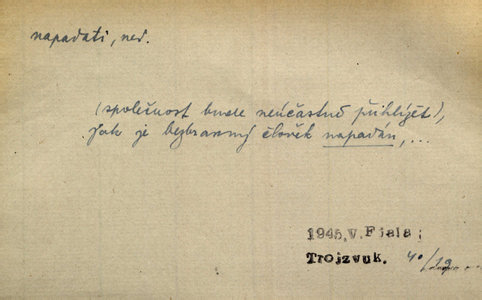 napadati, ned.
(společnost bude neúčastně přihlížet),
jak je bezbranný člověk napadán, ...
1945, V. Fiala:
Trojzvuk. 40/19